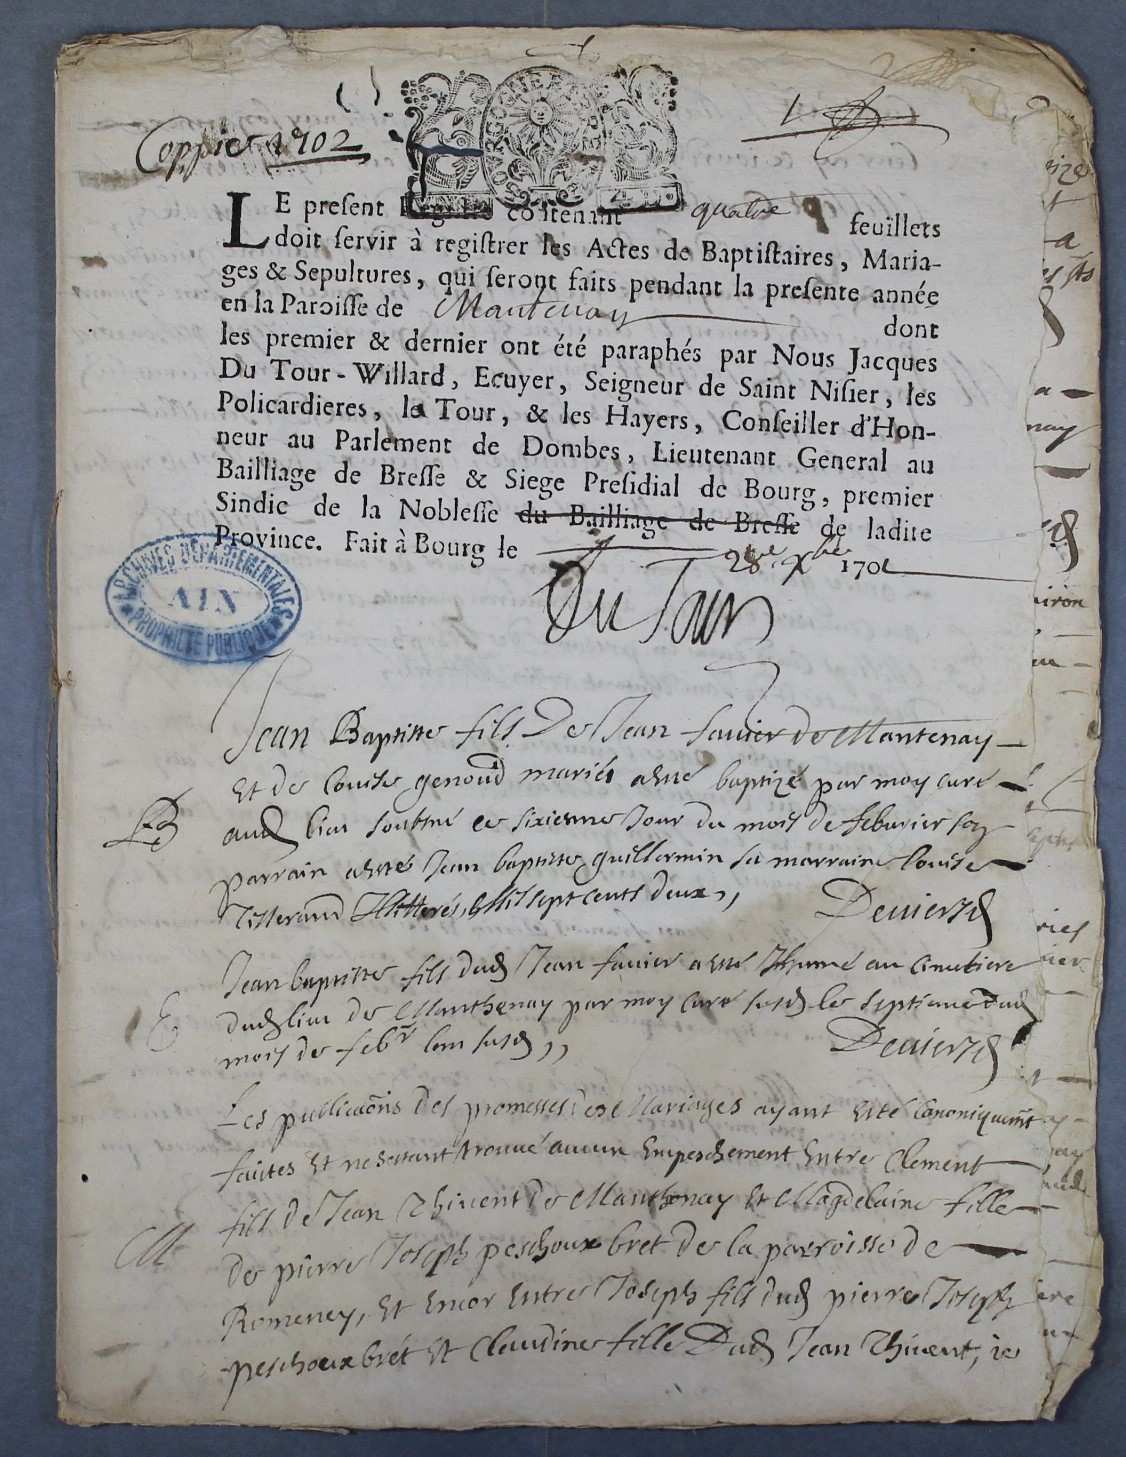 Coppie 1702
1
LE preſent Regiſtre contenant quatre feuillets
doit ſervir à regiſtrer les Actes de Baptiſtaires, Maria-
ges & Sepultures, qui ſeront faits pendant la preſente année
en la Paroiſſe de Mantenay dont
les premier & dernier ont été paraphés par Nous Jacques
Du Tour-Willard, Ecuyer, Seigneur de Saint Niſier, les
Policardieres, la Tour, & les Hayers, Conſeiller d'Hon-
neur au Parlement de Dombes, Lieutenant General au
Bailliage de Breſſe & Siege Preſidial de Bourg, premier
Sindic de la Nobleſſe du Bailliage de Breſſe de ladite
Province. Fait à Bourg le 28e Xbre 1701
Du Tour
ARCHIVES DÉPARTEMENTALES
AIN
PROPRIÉTÉ PUBLIQUE
Jean Baptiste fils De Jean favier de Mantenay
Et de Louise genoud mariés a esté baptizé par moy curé
B
aud lieu soubsné ce sixiesme Jour du mois de febvrier son
parrain a esté Jean baptiste guillermin sa marraine Louise
Tisserand Illitterés, Mil sept cents deux,,
Jean baptiste fils dud Jean favier a esté Jhumé au Cimetiere
dud lieu de Manthenay par moy curé susd le septieme dud
mois de febr lan susd,,
Les publicaõns des promesses de Mariages ayant esté Canoniquemt
faites Et ne sestant trouvé aucun Empeschement Entre Clement
M
fils de Jean Thivent de Manthenay Et Magdelaine fille
de pierre Joseph peschoux bret de la parroisse de
Romeney, Et Encor Entre Joseph fils dud pierre Joseph
peschoux brét Et Claudine fille Dud Jean Thivent, je